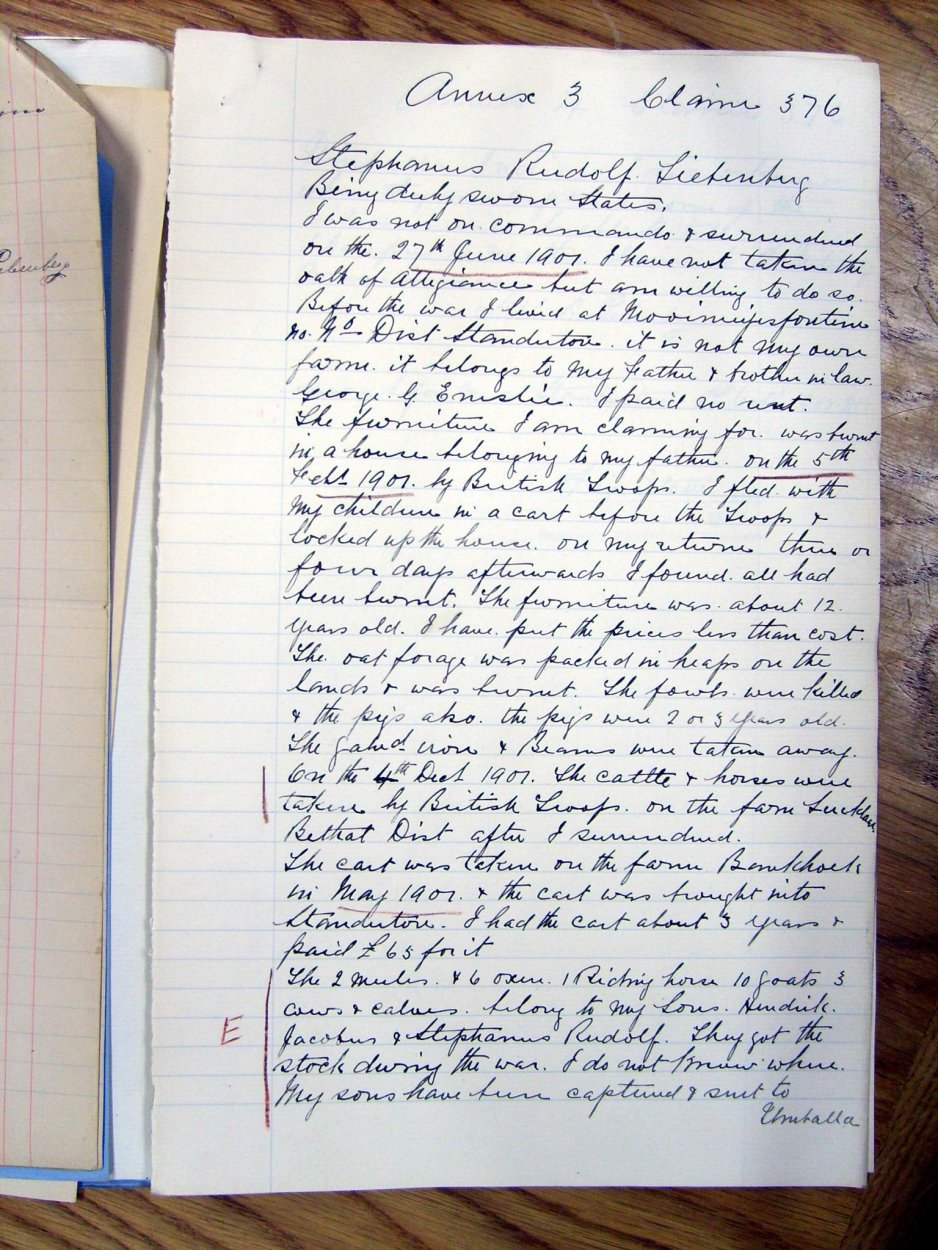 Annex 3 Claim 376
Stephanus Rudolf Liebenberg
Being duly sworn States.
I was not on commando & surrendered
on the 27th June 1901. I have not taken the
oath of Allegiance but am willing to do so.
Before the war I lived at Mooimeijesfontein
no. No Dist Standerton. it is not my own
farm. it belongs to my Father & brother in law.
George. G. I paid no rent.
The furniture I am claiming for. was burnt
in a house belonging to my father. on the 5th
Feby 1901. by British Troops. I fled with
My children in a cart before the Troops &
locked up the house. on my return three or
four days afterwards I found all had
been burnt. The furniture was about 12.
years old. I have put the prices less than cost.
The oat forage was packed in heaps on the
lands & was burnt. The fowls were killed
& the pigs also. the pigs were 2 or 3 years old.
The galvd iron & Beams were taken away.
On the 4th 1901. The cattle & horses were
taken by British Troops. on the farm
Bethal Dist after I surrendered.
The cart was taken on the farm Bankhoek
in May 1901. & the cart was brought into
Standerton. I had the cart about 3 years &
paid £65 for it
The 2 mules. & 6 oxen. 1 Riding horse 10 goats 3
cows & calves. belong to my Sons. Hendrik.
E Jacobus & Stephanus Rudolf. They got the
stock during the war. I do not know where.
My sons have been captured & sent to
Umballa